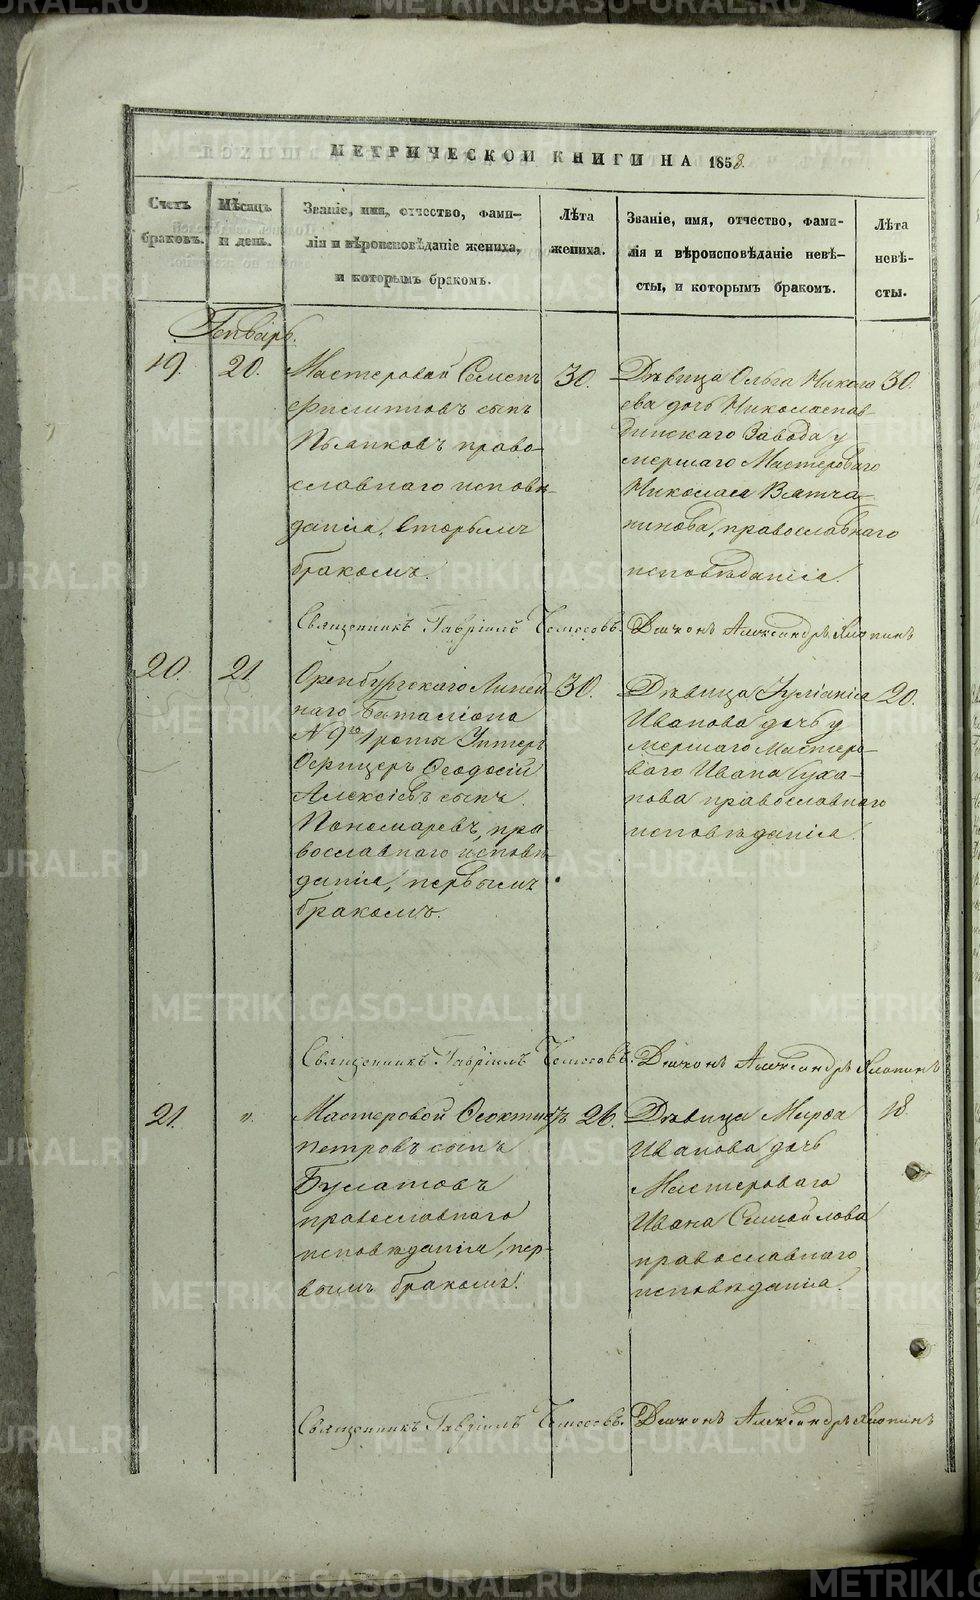 МЕТРИЧЕСКОЙ КНИГИ НА 1858.
Счетъ браковъ.
Мѣсяцъ и день.
Званіе, имя, отчество, фами-
лія и вѣроисповѣданіе жениха,
и которымъ бракомъ.
Лѣта жениха.
Званіе, имя, отчество, фами-
лія и вѣроисповѣданіе невѣ-
сты, и которымъ бракомъ.
Лѣта невѣ-
сты.
Генварь.
19.
20.
Мастеровой Семенъ
Филипповъ сынъ
право-
славнаго исповѣ-
данія, вторымъ
бракомъ.
30.
Дѣвица Ольга Никола
ева дочь Николаепав-
динскаго Завода у
мершаго Мастероваго
Николая Вятча-
нинова, православнаго
исповѣданія.
30.
Священникъ Гавріилъ
Діаконъ Александръ Хлопинъ
20.
21
Оренбургскаго Линей
наго Баталіона
N 9го роты Унтеръ
Офицеръ Ѳеодосій
Алексіевъ сынъ
Пономаревъ, пра
вославнаго исповѣ-
данія, первымъ
бракомъ.
30.
Дѣвица Іуліанія
Иванова дочь у
мершаго Мастеро-
ваго Ивана Суха-
нова православнаго
исповѣданія.
20.
Священникъ Гавріилъ
Діаконъ Александръ Хлопинъ
21.
"
Мастеровой Ѳеоктистъ
Петровъ сынъ
Булатовъ
православнаго
исповѣданія, пер-
вымъ бракомъ.
26.
Дѣвица Марѳа
Иванова дочь
Мастероваго
Ивана Самойлова
православнаго
исповѣданія.
18
Священникъ Гавріилъ
Діаконъ Александръ Хлопинъ
METRIKI.GASO-URAL.RU